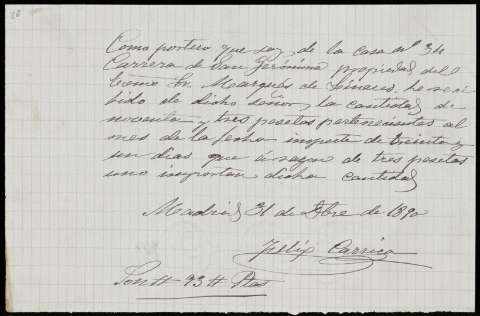 Como portero que soy, de la casa nº 34
Carrera de San Jerónimo propiedad del
Exmo Sr. Marqués de Linares, he reci
bido de dicho señor, la cantidad de
noventa y tres pesetas pertenecientes al
mes de la fecha importe de treinta y
un dias que á razon de tres pesetas
uno importan dicha cantidad
Madrid 31 de Dbre de 1890
Felix Carrica
Son # 93 # Ptas